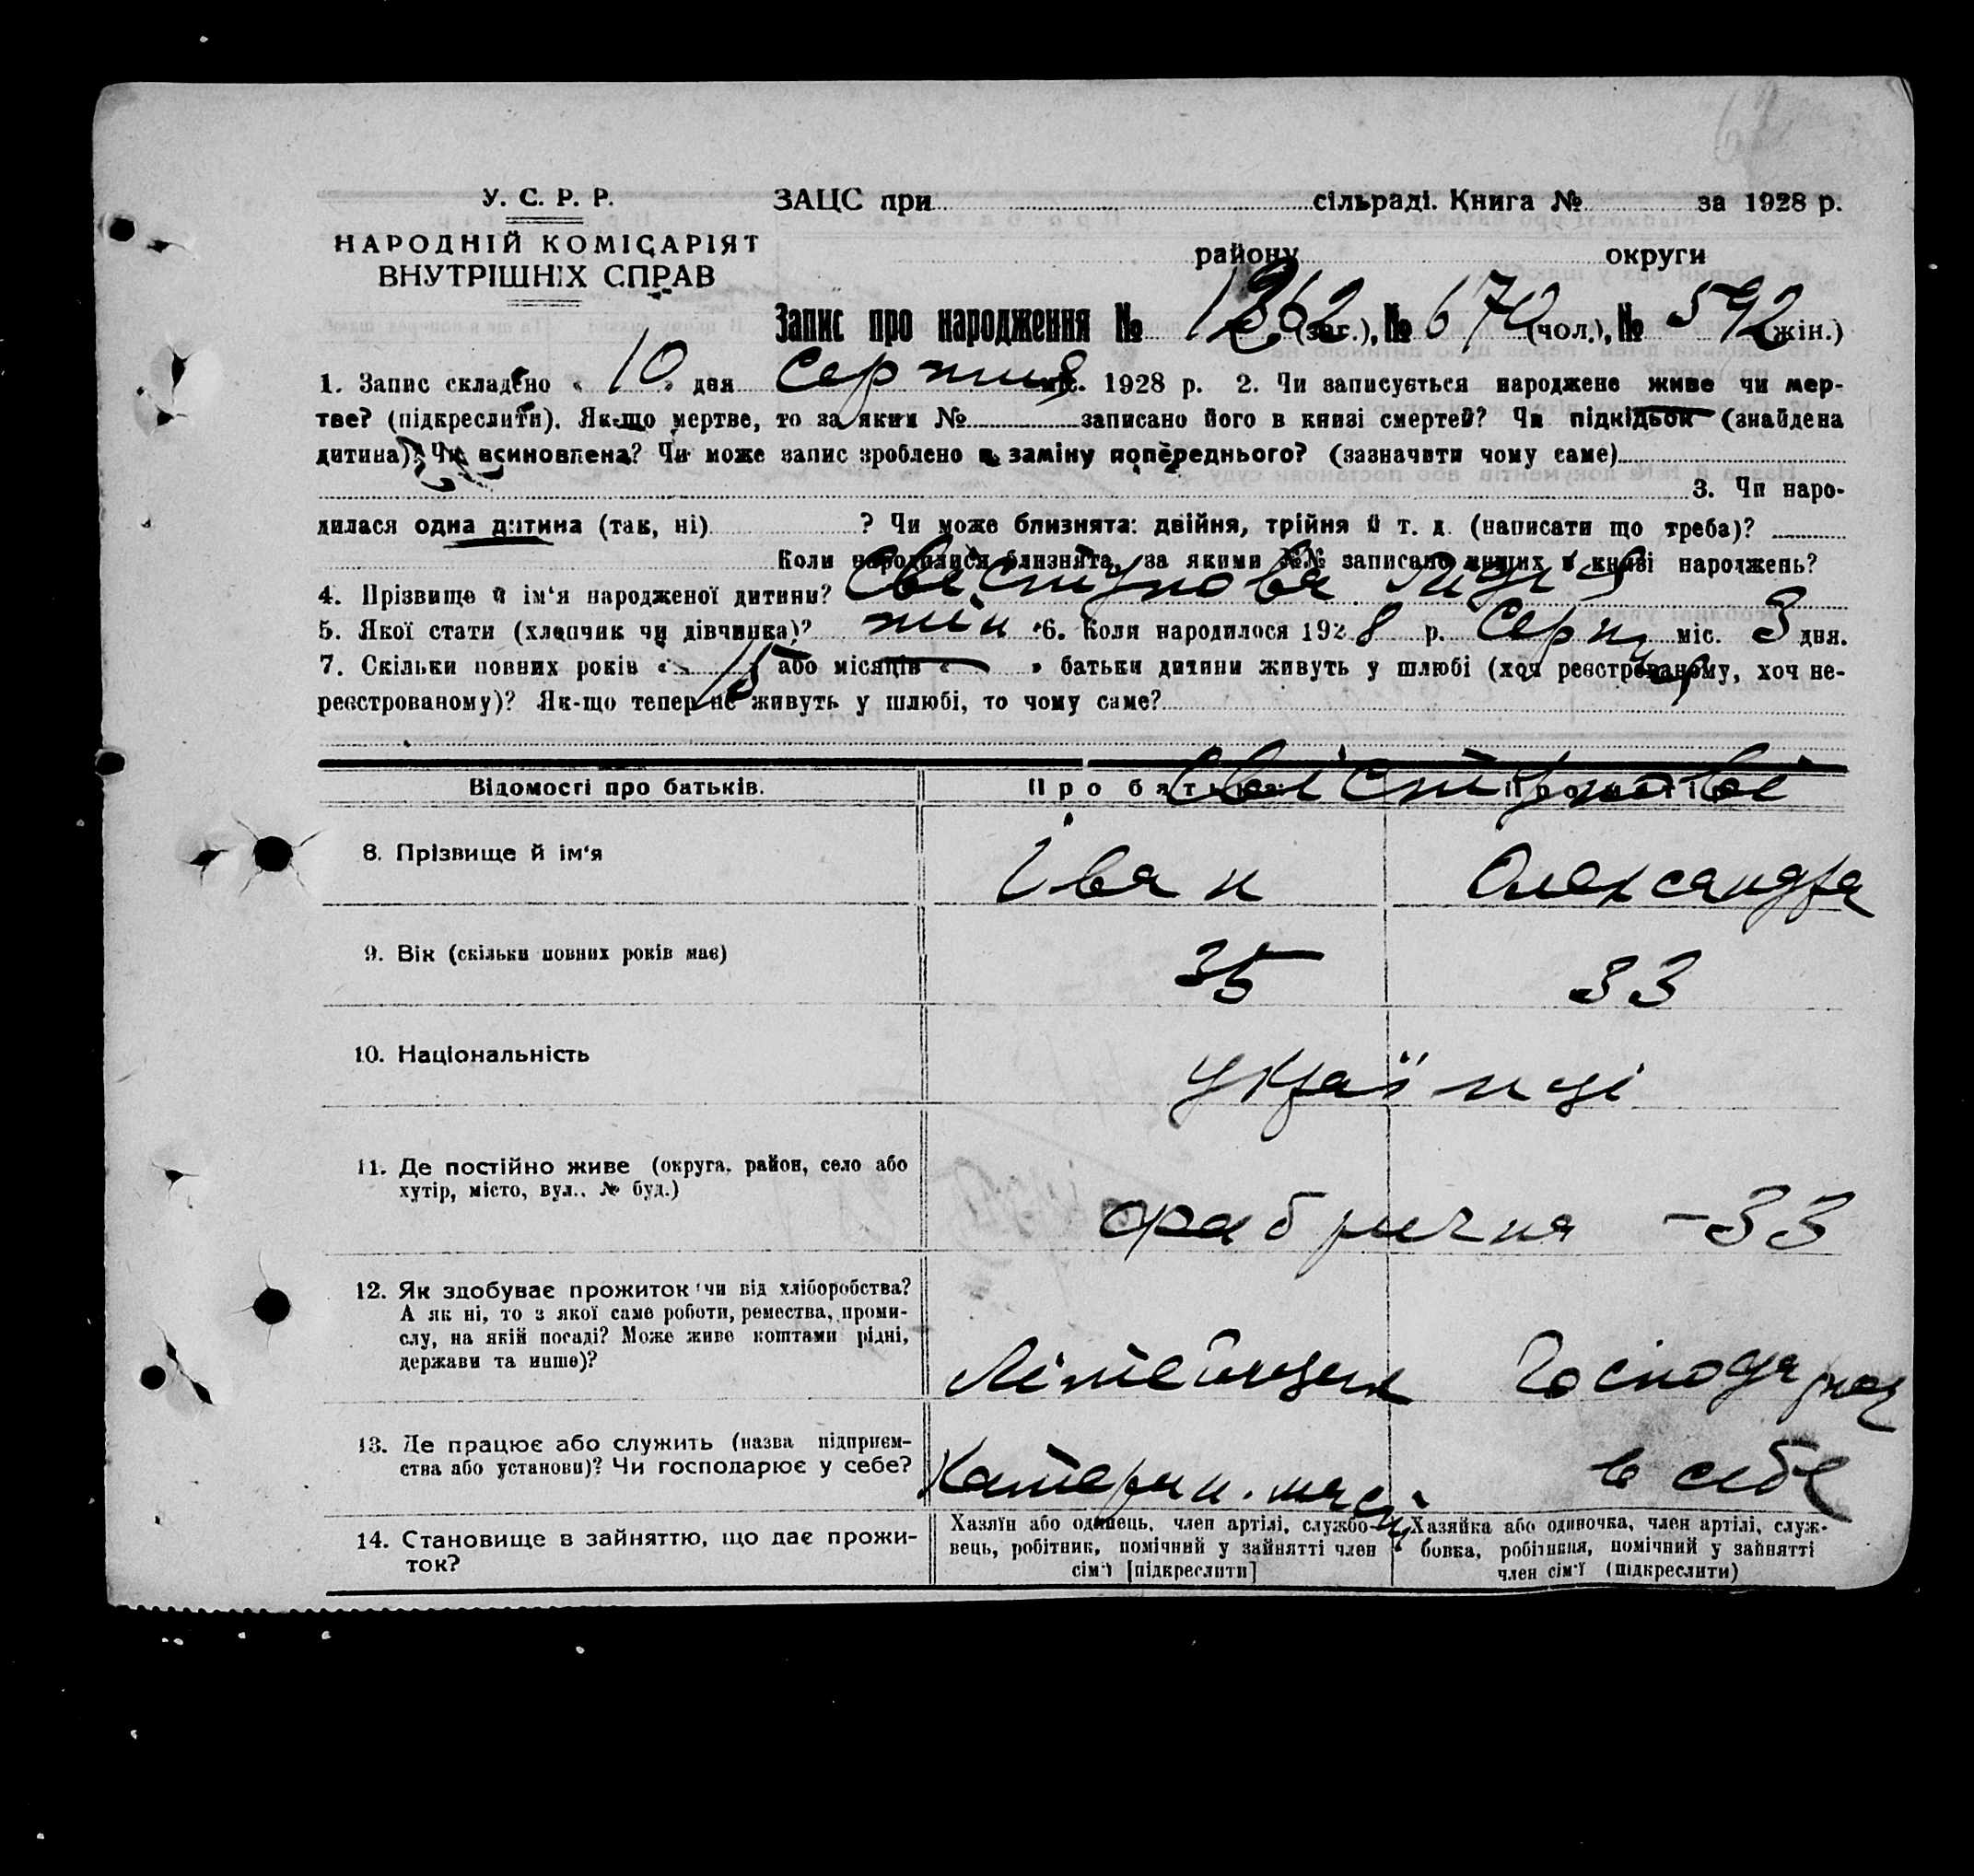 У. С. Р. Р.
НАРОДНІЙ КОМІСАРІЯТ
ВНУТРІШНІХ СПРАВ
ЗАЦС при сільраді. Книга № за 1928 р.
району округи
Запис про народження № 1262 (заг.), № 670 (чол.), № 592 (жін.)
1. Запис складено « 10 » дня Серпня міс. 1928 р. 2. Чи записується народжене живе чи мер-
тве? (підкреслити). Як-що мертве, то за яким № записано його в книзі смертей? Чи підкідьок (знайдена
дитина)? Чи всиновлена? Чи може запис зроблено в заміну попереднього? (зазначити чому саме)
3. Чи наро-
дилася одна дитина (так, ні) ? Чи може близнята: двійня, трійня й т. д. (написати що треба)?
Коли народилися близнята, за якими №№ записано инших в книзі народжень?
4. Прізвище й ім‘я народженої дитини? Свістунова
5. Якої стати (хлопчик чи дівчинка)? жін 6. Коли народилося 1928 р. Серпня міс. 3 дня.
7. Скільки повних років « 15 або місяців « » батьки дитини живуть у шлюбі (хоч реєстрованому, хоч не-
реєстрованому)? Як-що тепер не живуть у шлюбі, то чому саме?
Відомості про батьків. Про батька Про матір
Свістунові
8. Прізвище й ім‘я Іван Олександра
9. Вік (скільки повних років має) 35 33
10. Національність українці
11. Де постійно живе (округа, район, село або
хутір, місто, вул., № буд.)
фабрична -33
12. Як здобуває прожиток чи від хліборобства?
А як ні, то з якої саме роботи, ремества, проми-
слу, на якій посаді? Може живе коштами рідні,
держави та инше)?
Літейщик Господарка
13. Де працює або служить (назва підприєм-
ства або установи)? Чи господарює у себе?
Катерин. в себе
14. Становище в зайняттю, що дає прожи-
ток?
Хазяїн або одинець, член артілі, службо-
вець, робітник, помічний у зайнятті член
сім‘ї [підкреслити]
Хазяйка або одиночка, член артілі, служ-
бовка, робітниця, помічний у зайнятті
член сім‘ї (підкреслити)